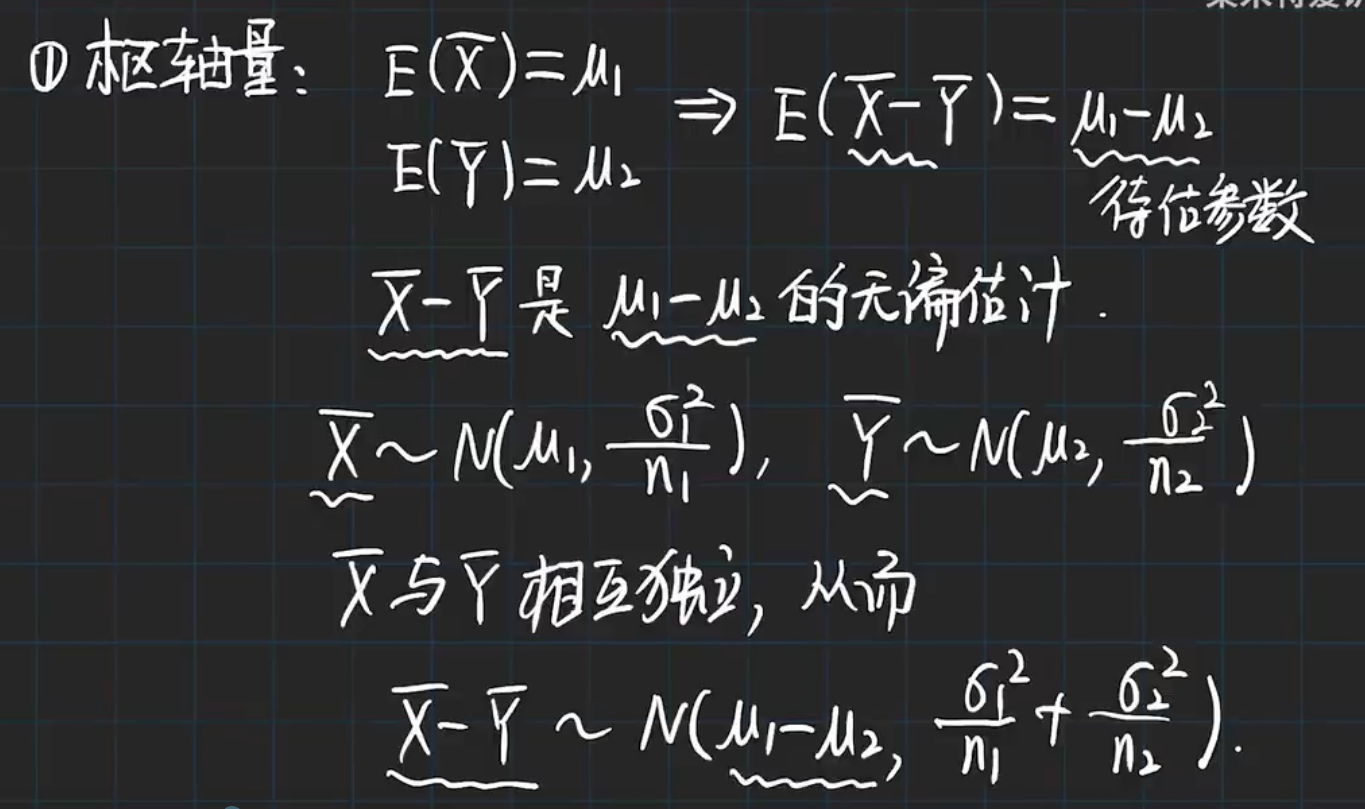 ① 枢轴量: E(X̄)=μ₁
E(Ȳ)=μ₂
⇒ E(X̄-Ȳ)=μ₁-μ₂
待估参数
X̄-Ȳ 是 μ₁-μ₂ 的无偏估计.
X̄~N(μ₁, σ₁²/n₁), Ȳ~N(μ₂, σ₂²/n₂)
X̄与Ȳ相互独立, 从而
X̄-Ȳ ~ N(μ₁-μ₂, σ₁²/n₁ + σ₂²/n₂).